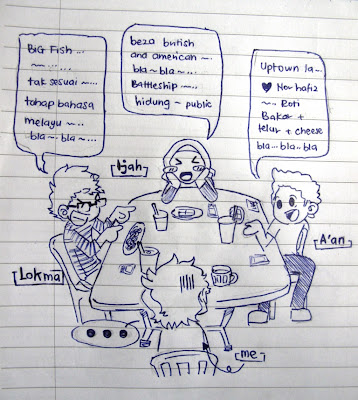 BiG Fish ...
~ ~ ~ ...
tak sesuai ~...
tahap bahasa
melayu ~ ..
bla ~.. bla ~...
beza british
and american ~..
bla ~ bla ~ ...
Battleship ...~.
hidung ~ public
Uptown la...
♥ Nor hafiz
~.. Roti
Bakar +
telur + cheese
bla... bla.. bla
[Ijah]
[A'an]
[Lokman]
[me]